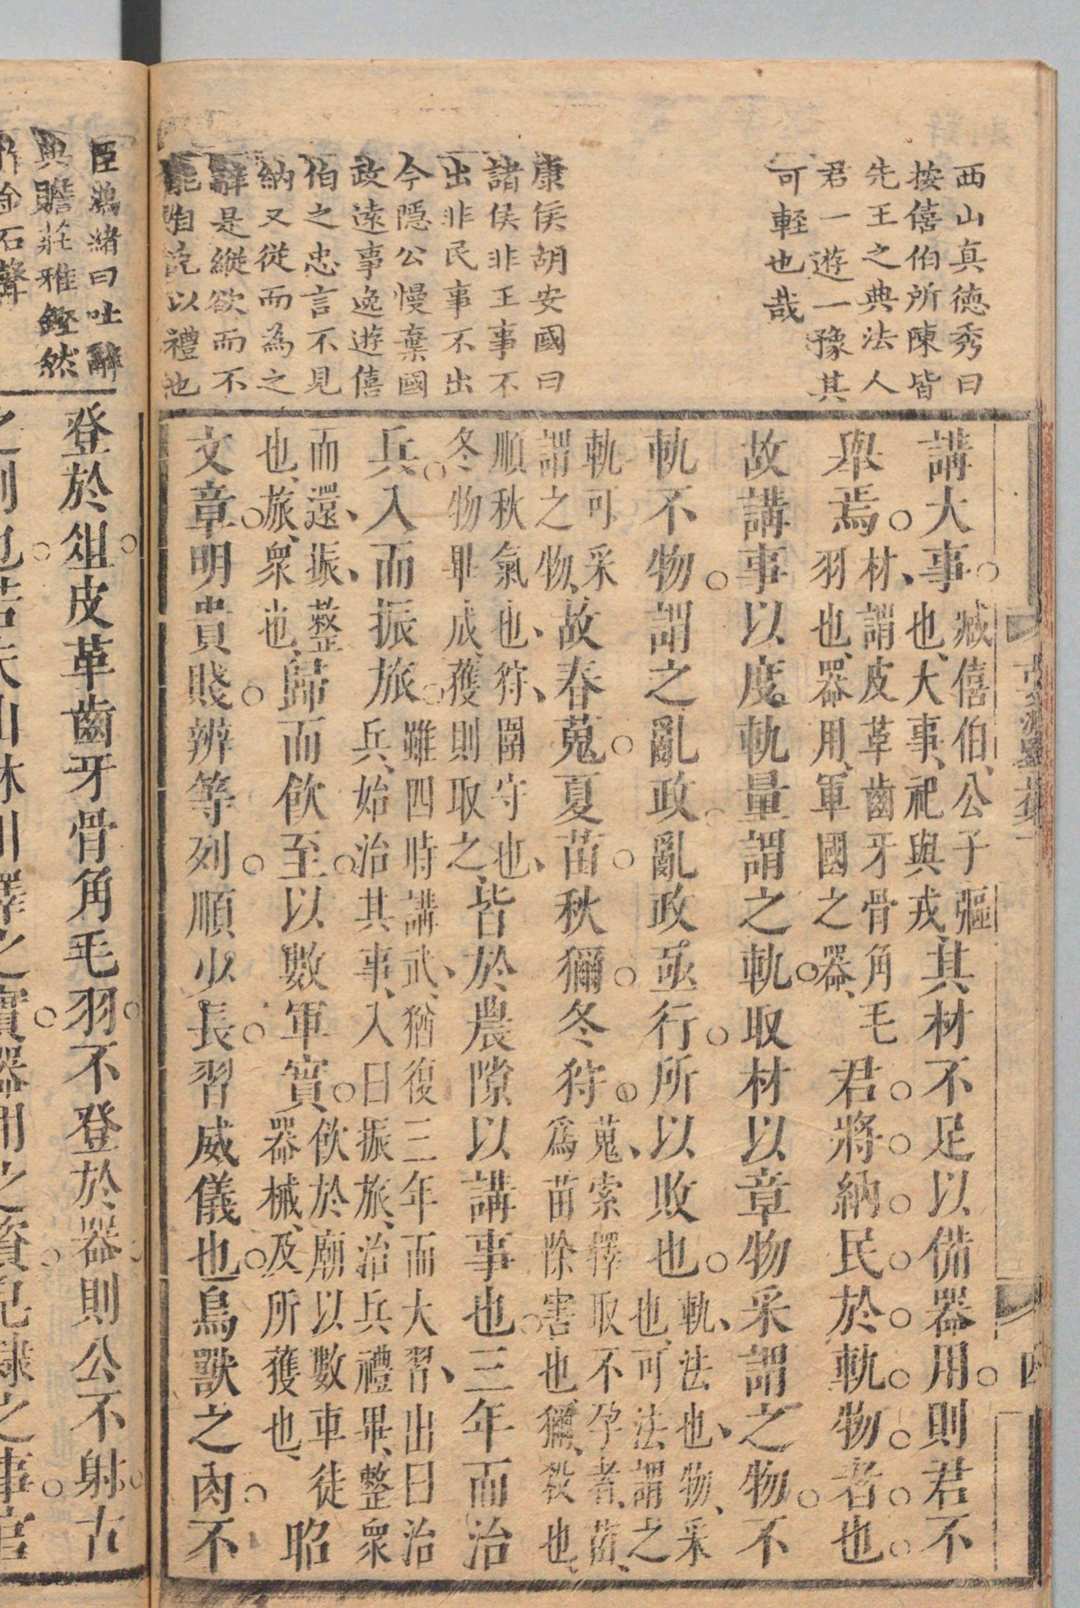 西山真德秀曰
按僖伯所陳皆
先王之典法人
君一遊一豫其
可輕也哉
康侯胡安國曰
諸侯非王事不
出非民事不出
今隱公慢棄國
政遠事逸遊僖
伯之忠言不見
納又從而為之
辭是縱欲而不
能自克以禮也
講大事臧僖伯、公子彄也、大事、祀與戎、其材不足以備器用則君不
舉焉材、謂皮革齒牙骨角毛羽也、器用、軍國之器、君將納民於軌物者也
故講事以度軌量謂之軌取材以章物采謂之物不
軌不物謂之亂政亂政亟行所以敗也軌、法也、物、采也、可法謂之
軌可采謂之物、故春蒐夏苗秋獮冬狩蒐、索擇取不孕者、苗、為苗除害也獮、殺也、
順秋氣也、狩、圍守也、冬物畢成、獲則取之、皆於農隙以講事也三年而治
兵入而振旅雖四時講武、猶復三年而大習、出曰治兵、始治其事、入曰振旅、治兵禮畢、整眾
而還、振、整也、旅、眾也、歸而飲至以數軍實飲於廟以數車徒器械、及所獲也、昭
文章明貴賤辨等列順少長習威儀也鳥獸之肉不
四
臣鴻緒曰吐辭
典贍莊雅鏗然
作金石聲
登於俎皮革齒牙骨角毛羽不登於器則公不射古
之制也若夫山林川澤之實器用之資皁隸之事官